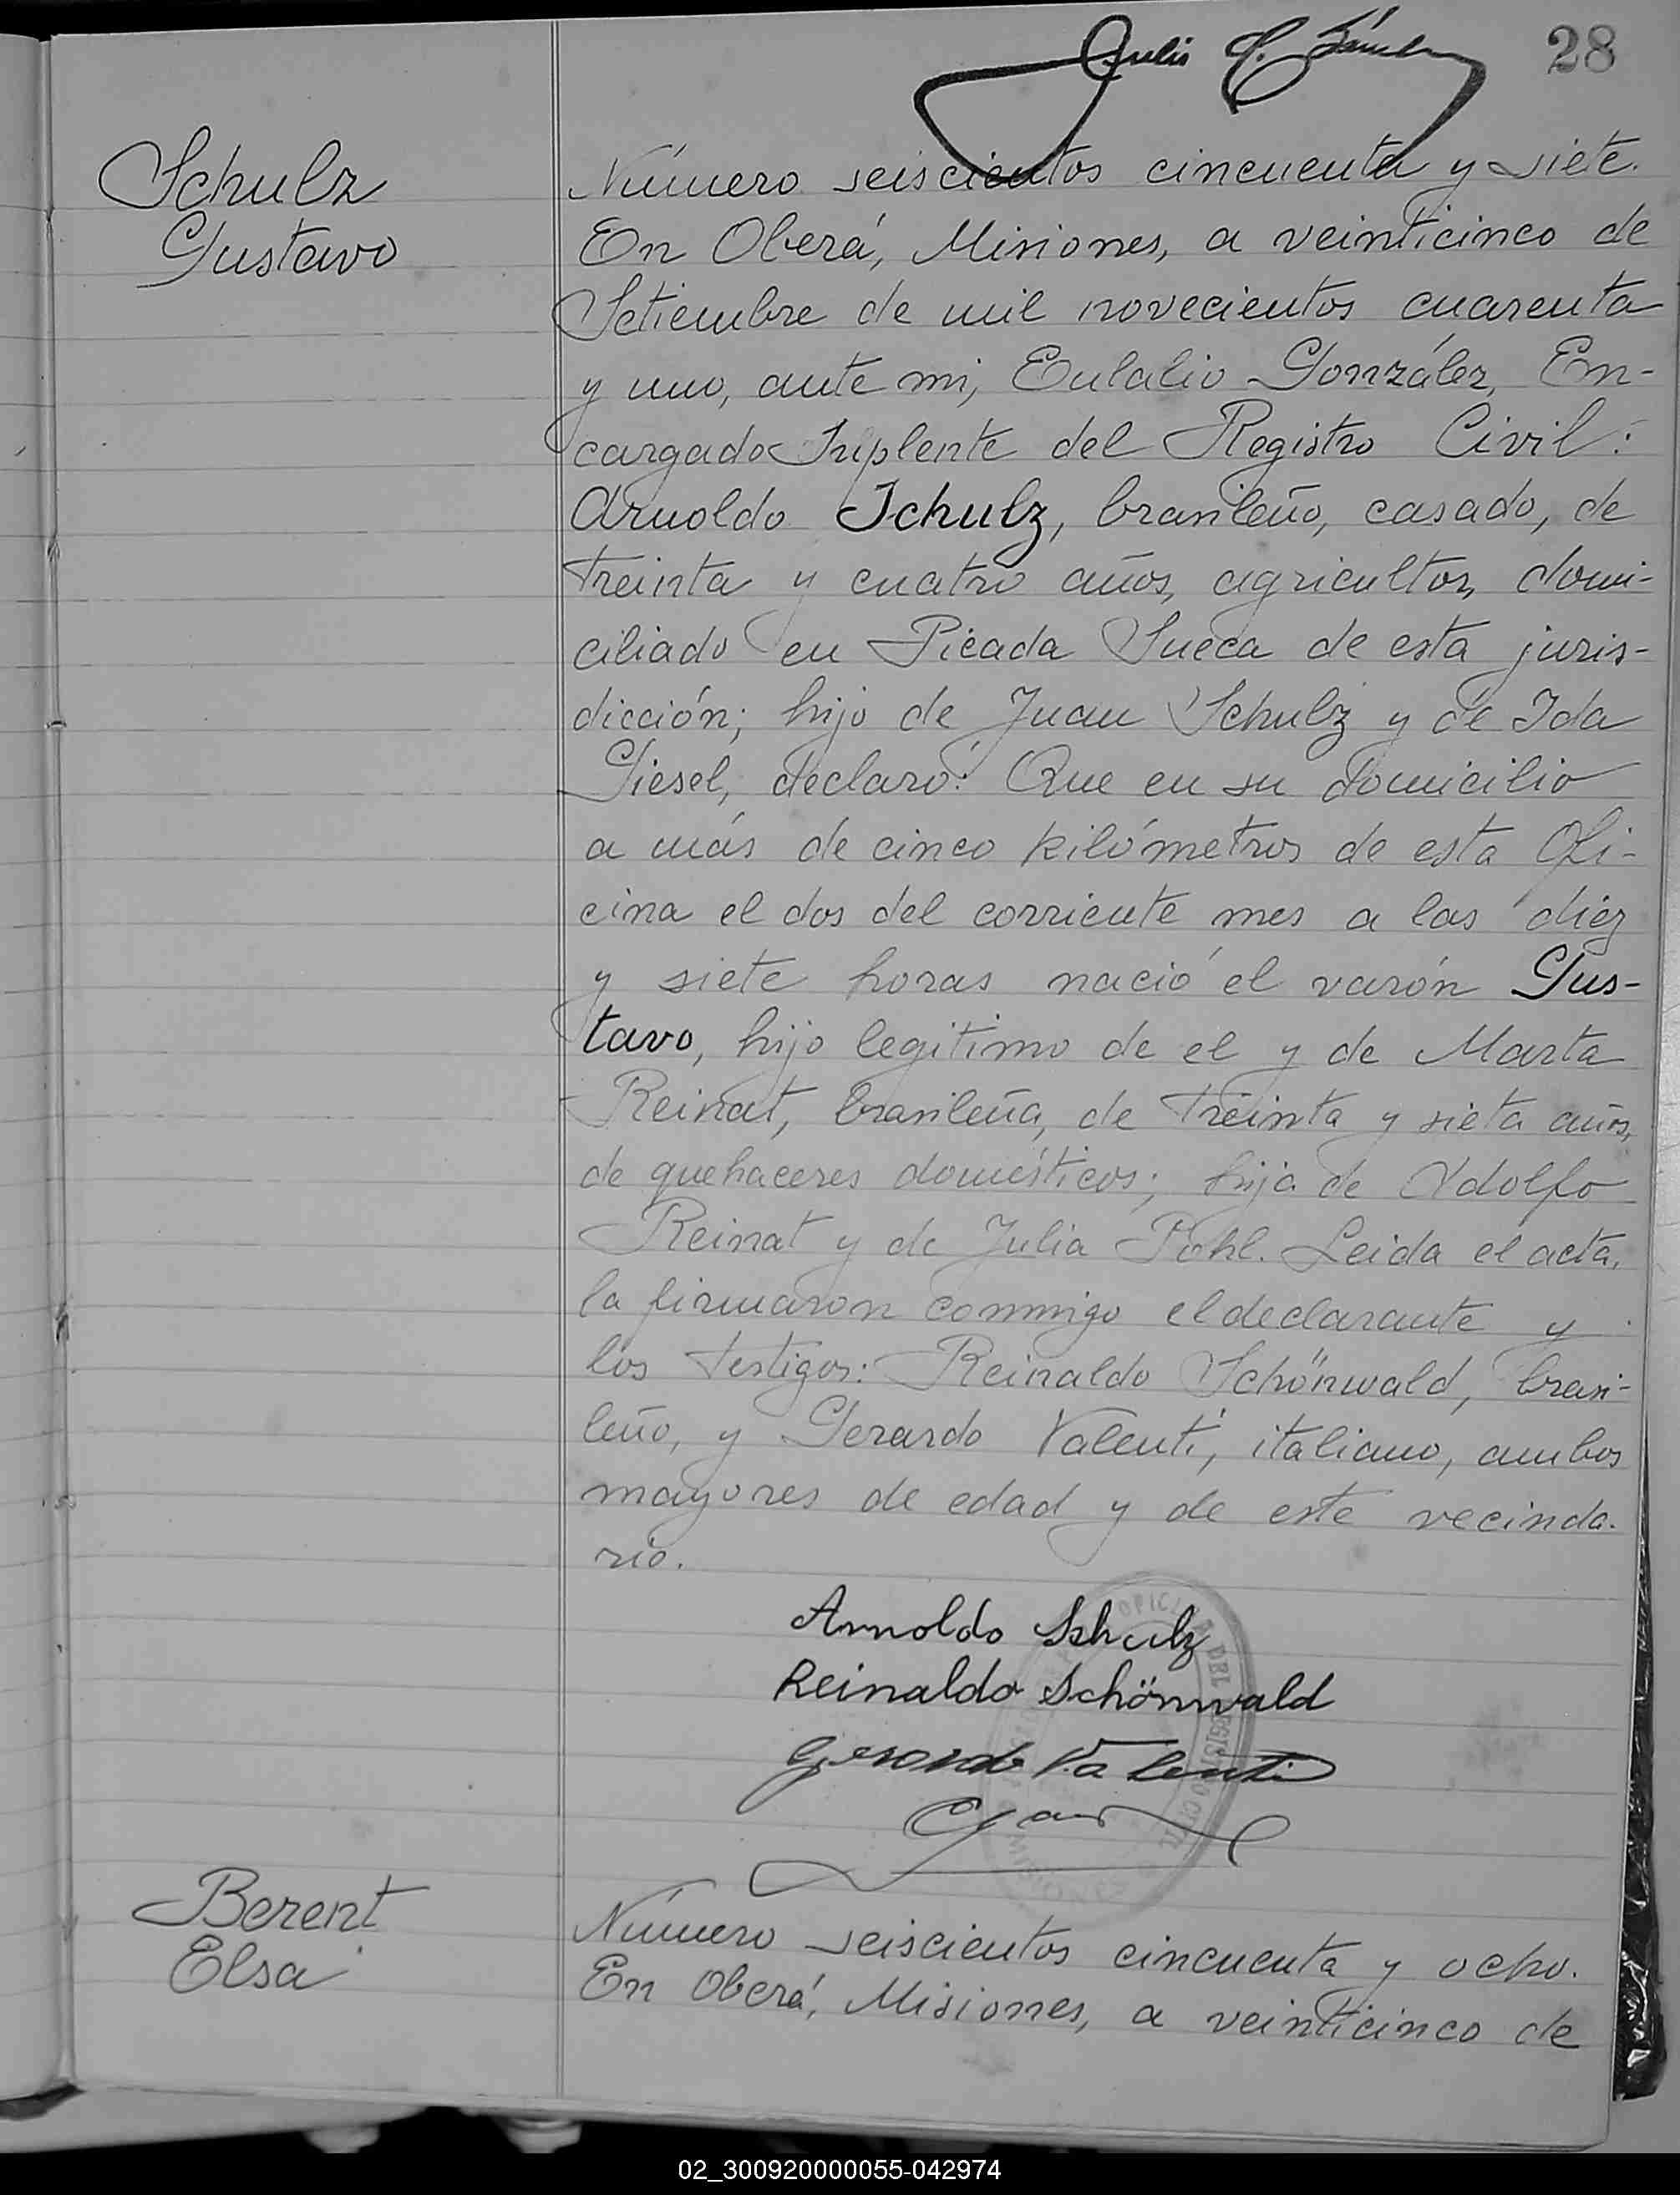 28
Schulz
Gustavo
Número seiscientos cincuenta y siete.
En Oberá, Misiones, a veinticinco de
Setiembre de mil novecientos cuarenta
y uno, ante mi, Eulalio González, En-
cargado Suplente del Registro Civil:
Arnoldo Schulz, brasileño, casado, de
treinta y cuatro años, agricultor, domi-
ciliado en Picada Sueca de esta juris-
dicción; hijo de Juan Schulz y de Ida
Giesel, declaró: Que en su domicilio
a más de cinco kilómetros de esta Ofi-
cina el dos del corriente mes a las diez
y siete horas nació el varón Gus-
tavo, hijo legitimo de el y de Marta
Reinat, brasileña, de treinta y siete años,
de quehaceres domésticos; hija de Adolfo
Reinat y de Julia Pohl. Leida el acta,
la firmaron conmigo el declarante y
los testigos: Reinaldo Schönwald, brasi-
leño, y Gerardo Valenti, italiano, ambos
mayores de edad y de este vecinda-
rio.
Arnoldo Schulz
Reinaldo Schönwald
Gerardo Valenti
Berent
Elsa
Número seiscientos cincuenta y ocho.
En Oberá, Misiones, a veinticinco de
02_300920000055-042974